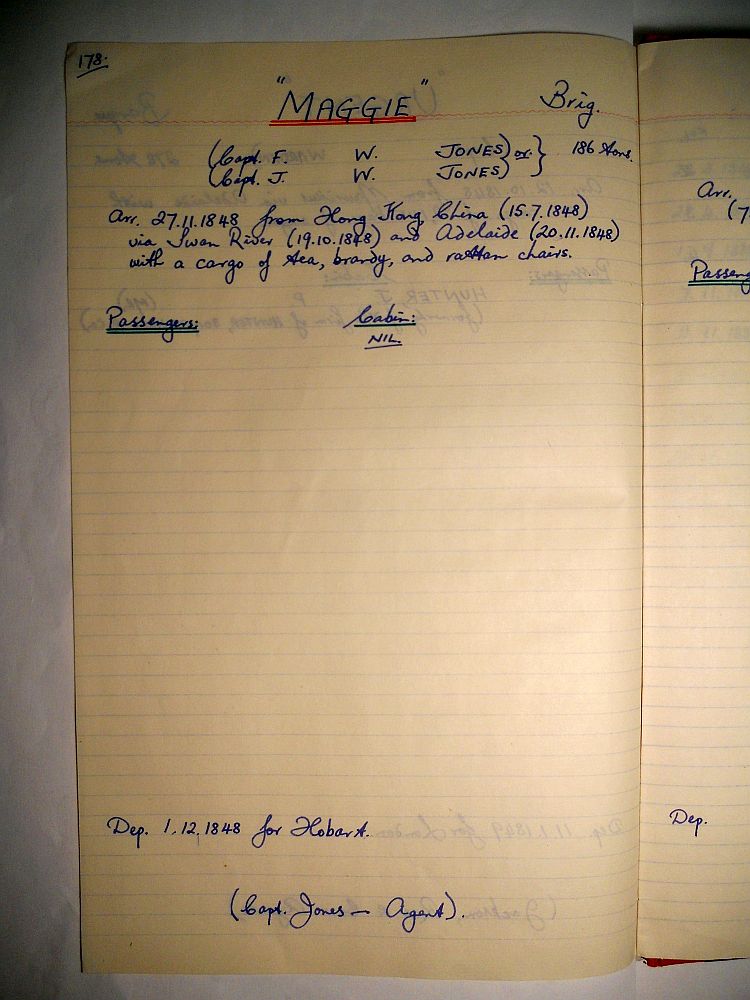 178.
"MAGGIE" Brig.
(Capt. F. W. JONES) or } 186 tons.
(Capt. J. W. JONES)
Arr. 27.11.1848 from Hong Kong, China (15.7.1848)
via Swan River (19.10.1848) and Adelaide (20.11.1848)
with a cargo of tea, brandy, and rattan chairs.
Passengers: Cabin:
NIL.
Dep. 1.12.1848 for Hobart.
(Capt. Jones — Agent).
Arr.
(7
Passeng
Dep.